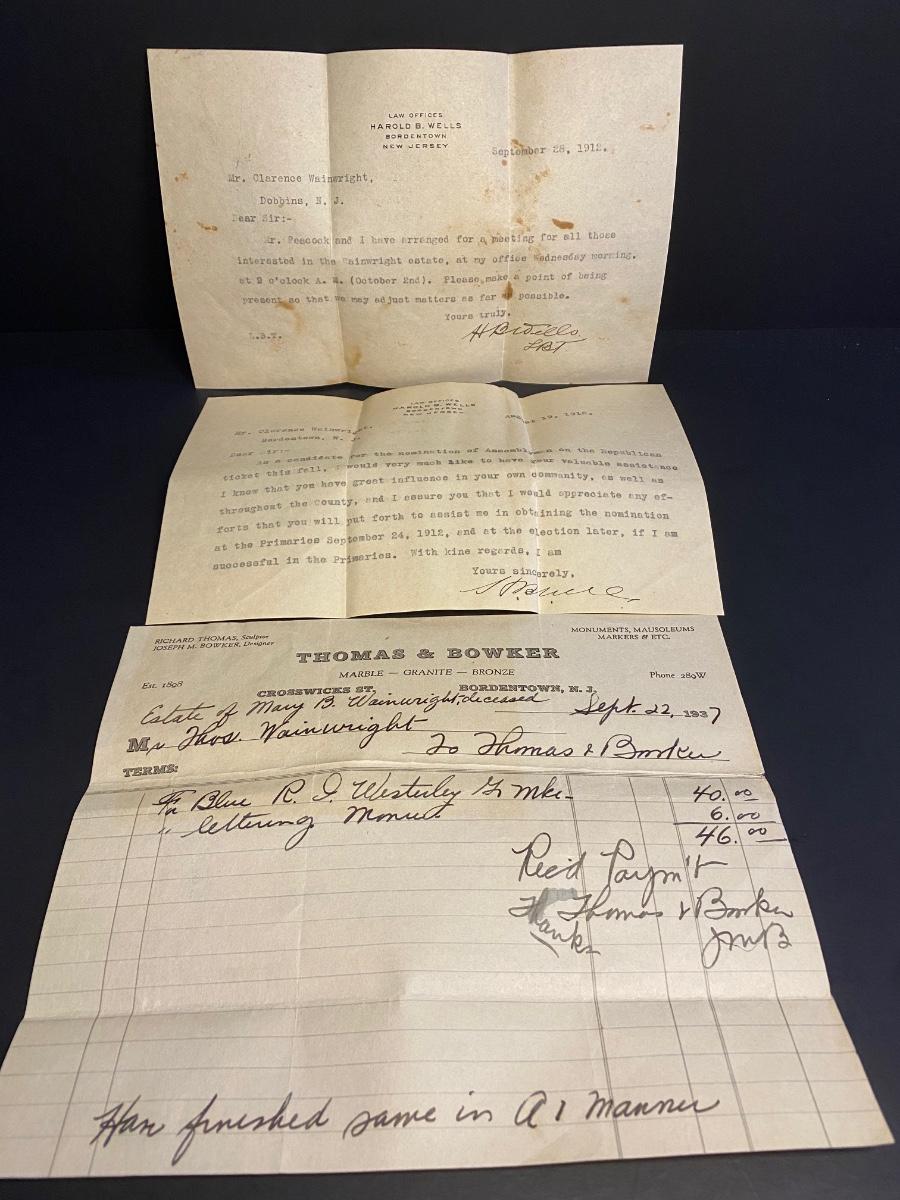 LAW OFFICES
HAROLD B. WELLS
BORDENTOWN
NEW JERSEY
September 28, 1912.
Mr. Clarence Wainwright,
Dobbins, N. J.
Dear Sir:-
Mr. Peacock and I have arranged for a meeting for all those
interested in the Wainwright estate, at my office Wednesday morning,
at 9 o'clock A. M. (October 2nd). Please make a point of being
present so that we may adjust matters as far as possible.
Yours truly,
H B Wells
LBT
LAW OFFICES
HAROLD B. WELLS
BORDENTOWN
NEW JERSEY
19, 1912.
Mr. Clarence Wainwright,
Bordentown, N. J.
Dear Sir:-
As a candidate for the nomination of Assemblyman on the Republican
ticket this fall, I would very much like to have your valuable assistance
I know that you have great influence in your own community, as well as
throughout the County, and I assure you that I would appreciate any ef-
forts that you will put forth to assist me in obtaining the nomination
at the Primaries September 24, 1912, and at the election later, if I am
successful in the Primaries. With kine regards, I am
Yours sincerely,
RICHARD THOMAS, Sculptor
JOSEPH M. BOWKER, Designer
MONUMENTS, MAUSOLEUMS
MARKERS & ETC.
THOMAS & BOWKER
MARBLE — GRANITE — BRONZE
Est. 1898
Phone 289W
CROSSWICKS ST, BORDENTOWN, N. J.
Estate of Mary B. Wainwright, deceased
Sept. 22, 1937
Mr Thos. Wainwright
To Thomas & Bowker
TERMS:
For Blue R. I. Westerley G. Mkr 40.00
" lettering Monu 6.00
46.00
Rec'd Paym't
Thomas & Bowker
Thanks JMB
Have finished same in A 1 manner